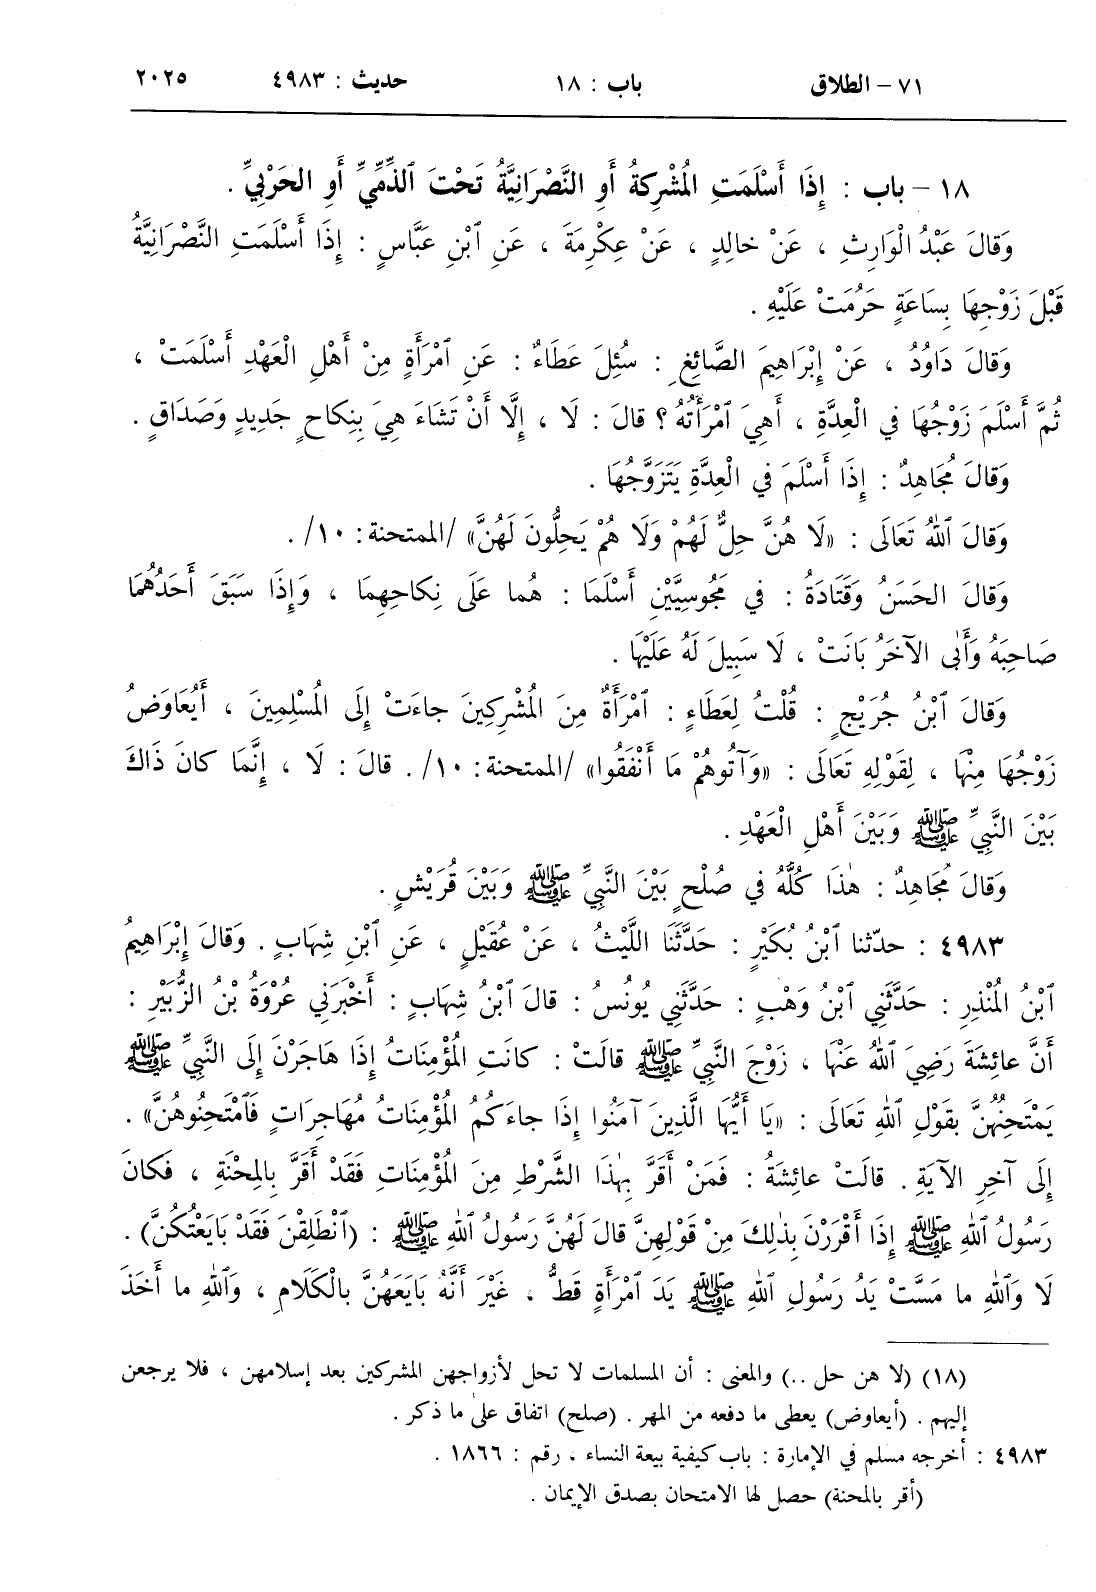 ٧١ – الطلاق باب : ١٨ حديث : ٤٩٨٣ ٢٠٢٥
١٨ – باب : إِذَا أَسْلَمَتِ الْمُشْرِكَةُ أَوِ النَّصْرَانِيَّةُ تَحْتَ ٱلذِّمِّيِّ أَوِ الحَرْبِيِّ .
وَقالَ عَبْدُ الْوَارِثِ ، عَنْ خالِدٍ ، عَنْ عِكْرِمَةَ ، عَنِ ٱبْنِ عَبَّاسٍ : إِذَا أَسْلَمَتِ النَّصْرَانِيَّةُ
قَبْلَ زَوْجِهَا بِسَاعَةٍ حَرُمَتْ عَلَيْهِ .
وَقالَ دَاوُدُ ، عَنْ إِبْرَاهِيمَ الصَّائِغِ : سُئِلَ عَطَاءٌ : عَنِ ٱمْرَأَةٍ مِنْ أَهْلِ الْعَهْدِ أَسْلَمَتْ ،
ثُمَّ أَسْلَمَ زَوْجُهَا فِي الْعِدَّةِ ، أَهِيَ ٱمْرَأَتُهُ ؟ قالَ : لَا ، إِلَّا أَنْ تَشَاءَ هِيَ بِنِكاحٍ جَدِيدٍ وَصَدَاقٍ .
وَقالَ مُجَاهِدٌ : إِذَا أَسْلَمَ فِي الْعِدَّةِ يَتَزَوَّجُهَا .
وَقالَ ٱللهُ تَعَالَى : «لَا هُنَّ حِلٌّ لَهُمْ وَلَا هُمْ يَحِلُّونَ لَهُنَّ» /الممتحنة: ١٠/ .
وَقالَ الحَسَنُ وَقَتَادَةُ : فِي مَجُوسِيَّيْنِ أَسْلَمَا : هُما عَلَى نِكاحِهِما ، وَإِذَا سَبَقَ أَحَدُهُمَا
صَاحِبَهُ وَأَبٰى الآخَرُ بَانَتْ ، لَا سَبِيلَ لَهُ عَلَيْهَا .
وَقالَ ٱبْنُ جُرَيْجٍ : قُلْتُ لِعَطَاءٍ : ٱمْرَأَةٌ مِنَ الْمُشْرِكِينَ جاءَتْ إِلَى الْمُسْلِمِينَ ، أَيُعَاوَضُ
زَوْجُهَا مِنْهَا ، لِقَوْلِهِ تَعَالَى : «وَآتُوهُمْ مَا أَنْفَقُوا» /الممتحنة: ١٠/ . قالَ : لَا ، إِنَّمَا كانَ ذَاكَ
بَيْنَ النَّبِيِّ ﷺ وَبَيْنَ أَهْلِ الْعَهْدِ .
وَقالَ مُجَاهِدٌ : هٰذَا كُلُّهُ فِي صُلْحٍ بَيْنَ النَّبِيِّ ﷺ وَبَيْنَ قُرَيْشٍ .
٤٩٨٣ : حدّثنا ٱبْنُ بُكَيْرٍ : حَدَّثَنَا اللَّيْثُ ، عَنْ عُقَيْلٍ ، عَنِ ٱبْنِ شِهَابٍ . وَقالَ إِبْرَاهِيمُ
ٱبْنُ الْمُنْذِرِ : حَدَّثَنِي ٱبْنُ وَهْبٍ : حَدَّثَنِي يُونُسُ : قالَ ٱبْنُ شِهَابٍ : أَخْبَرَنِي عُرْوَةُ بْنُ الزُّبَيْرِ :
أَنَّ عائِشَةَ رَضِيَ ٱللهُ عَنْهَا ، زَوْجَ النَّبِيِّ ﷺ قالَتْ : كانَتِ الْمُؤْمِنَاتُ إِذَا هَاجَرْنَ إِلَى النَّبِيِّ ﷺ
يَمْتَحِنُهُنَّ بِقَوْلِ ٱللهِ تَعَالَى : «يَا أَيُّهَا الَّذِينَ آمَنُوا إِذَا جاءَكُمُ الْمُؤْمِنَاتُ مُهَاجِرَاتٍ فَٱمْتَحِنُوهُنَّ» .
إِلَى آخِرِ الآيَةِ . قالَتْ عائِشَةُ : فَمَنْ أَقَرَّ بِهٰذَا الشَّرْطِ مِنَ الْمُؤْمِنَاتِ فَقَدْ أَقَرَّ بِالْمِحْنَةِ ، فَكانَ
رَسُولُ ٱللهِ ﷺ إِذَا أَقْرَرْنَ بِذٰلِكَ مِنْ قَوْلِهِنَّ قالَ لَهُنَّ رَسُولُ ٱللهِ ﷺ : (ٱنْطَلِقْنَ فَقَدْ بَايَعْتُكُنَّ) .
لَا وَٱللهِ ما مَسَّتْ يَدُ رَسُولِ ٱللهِ ﷺ يَدَ ٱمْرَأَةٍ قَطُّ ، غَيْرَ أَنَّهُ بَايَعَهُنَّ بِالْكَلَامِ ، وَٱللهِ ما أَخَذَ
(١٨) (لا هن حل ..) والمعنى : أن المسلمات لا تحل لأزواجهن المشركين بعد إسلامهن ، فلا يرجعن
إليهم . (أيعاوض) يعطى ما دفعه من المهر . (صلح) اتفاق علىٰ ما ذكر .
٤٩٨٣ : أخرجه مسلم في الإمارة : باب كيفية بيعة النساء ، رقم : ١٨٦٦ .
(أقر بالمحنة) حصل لها الامتحان بصدق الإيمان .